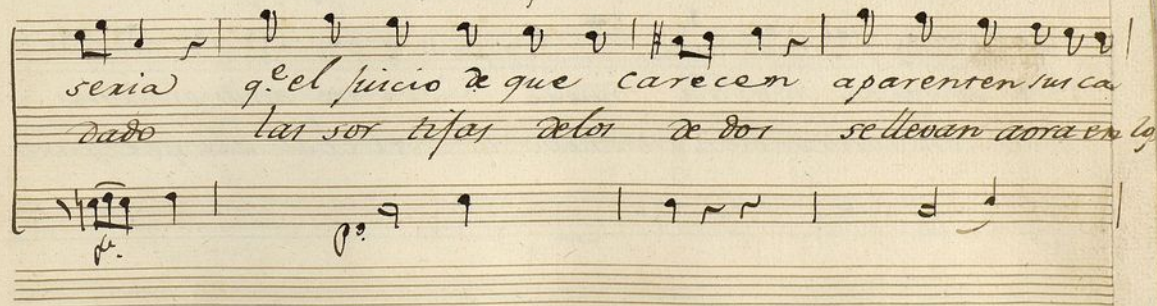 seria q.e el juicio de que carecen aparenten sus ca
dado las sor tijas delos de dos sellevan aora en lo
fe.
p.o